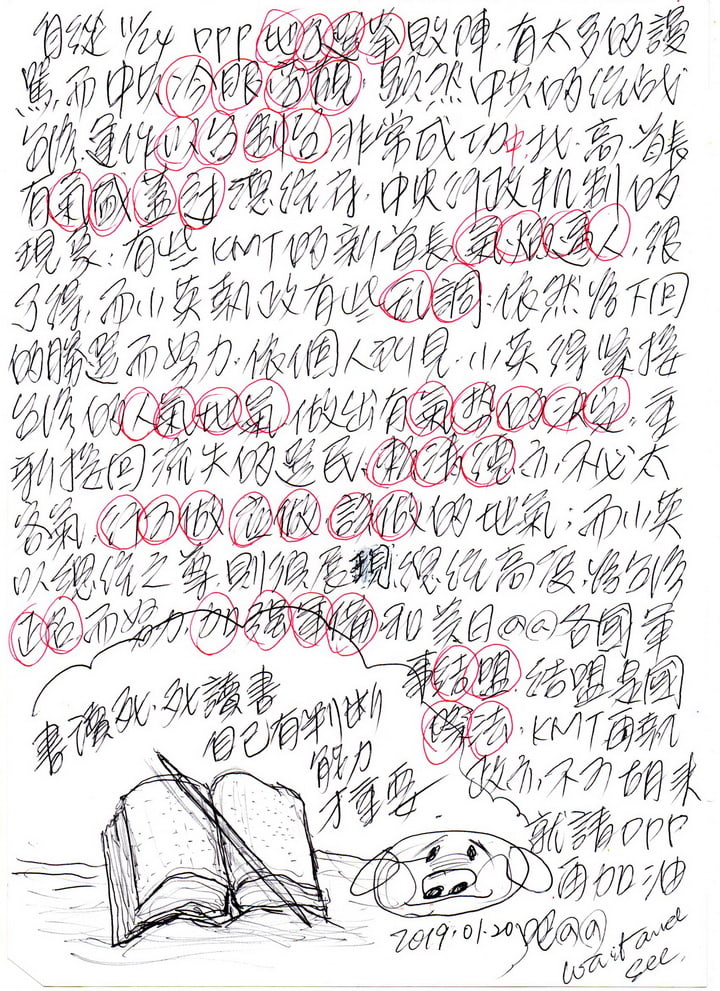 自從 11/24 DPP 地方選舉敗陣，有太多的謾
罵，而中共冷眼旁觀，顯然中共的統戰
台湾，運作以台制台非常成功中，北、高、首長
有氣威蓋过總統府、中央行政机制的
現象；有些KMT的新首長氣燄逼人，很
了得，而小英執政有些乱調，依然為下回
的勝選而努力，依個人刈見，小英得緊接
台湾的人氣地氣，做出有氣势的決定，重
新搅回流失的選民，賴清德亦不必太
客氣，行力做 应做 該做的地氣；而小英
以總統之尊則須展現總統高度，為台湾
正名而努力，加强軍備，和美日@@各國軍
事结盟，结盟是國
際法，KMT再執
政亦不可胡来
就請DPP
再加油
書讀死，死讀書
自己有判断
能力
才重要
2019.01.20
Wait and
See.